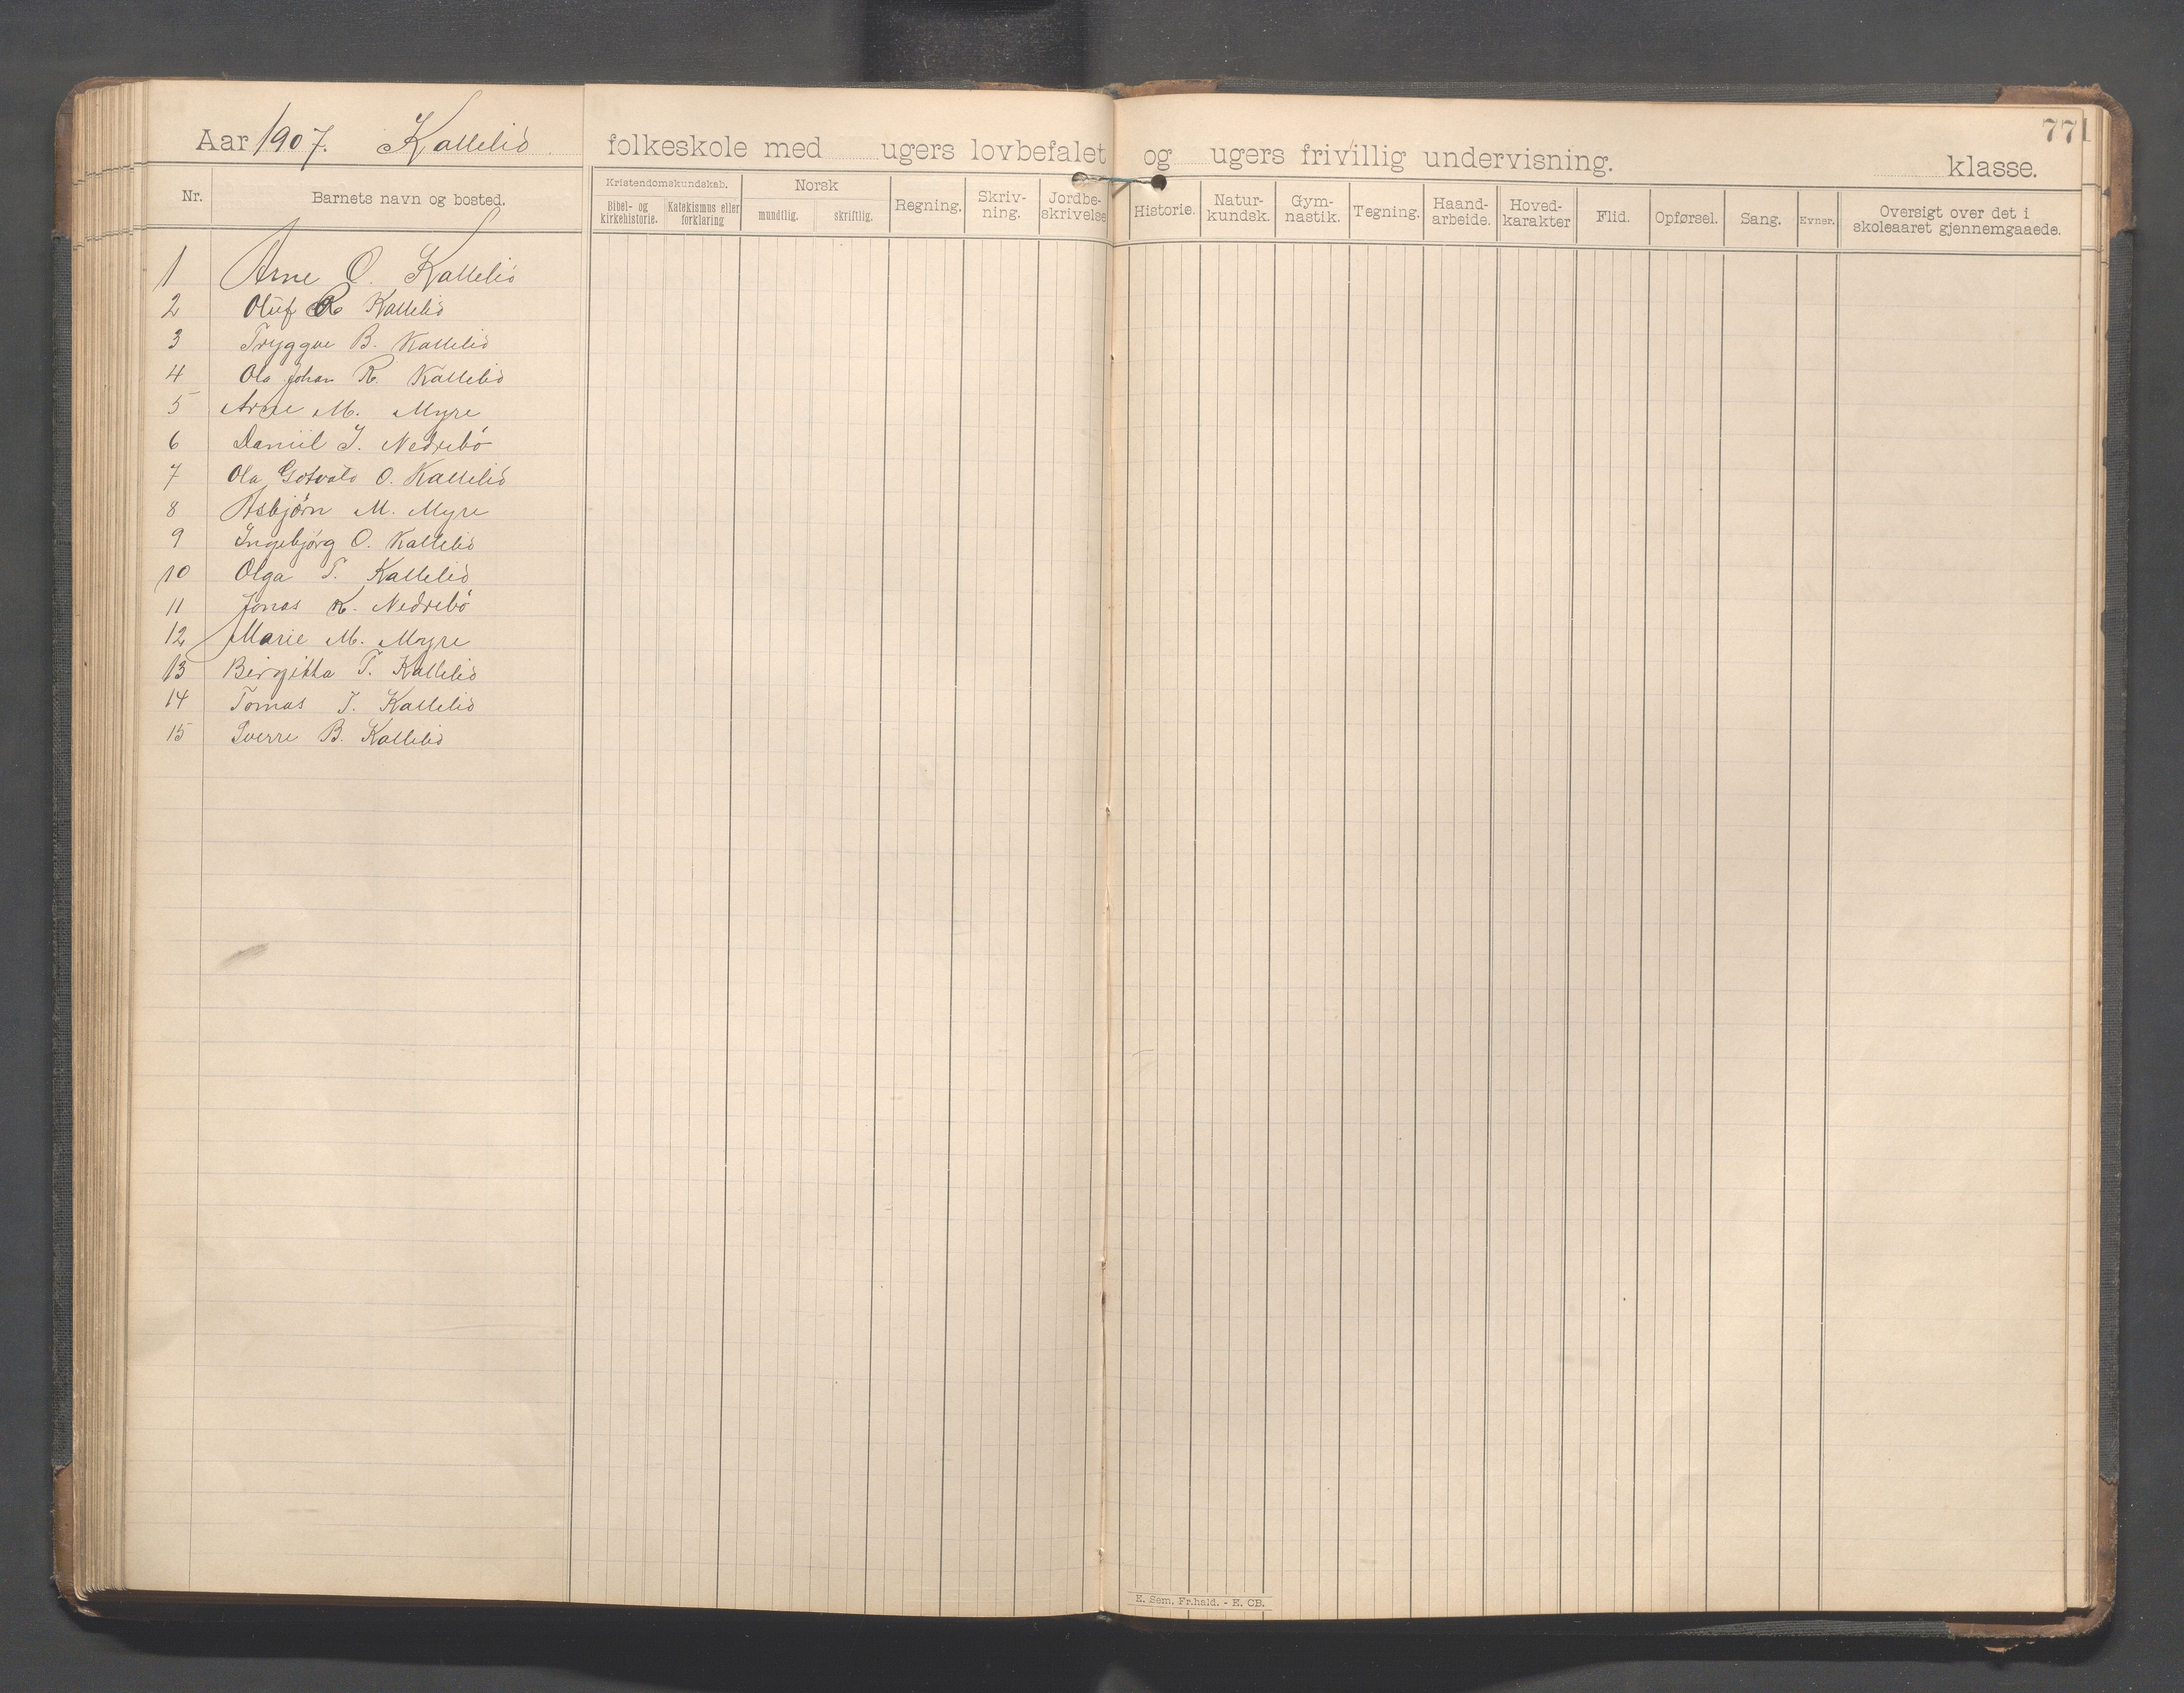 771
Aar 1907. Kallelid folkeskole med ugers lovbefalet og ugers frivillig undervisning. klasse.
Nr. Barnets navn og bosted. Kristendomskundskab. Bibel- og kirkehistorie. Katekismus eller forklaring Norsk mundtlig. skriftlig. Regning. Skriv-ning. Jordbe-skrivelse Historie. Natur-kundsk. Gym-nastik. Tegning. Haand-arbeide. Hoved-karakter Flid. Opførsel. Sang. Evner. Oversigt over det i skoleaaret gjennemgaaede.
1 Arne O. Kallelid
2 Oluf R Kallelid
3 Tryggve B. Kallelid
4 Ola Johan R. Kallelid
5 Arne M. Myre
6 Daniil J. Nedrebó
7 Ola Gotvald O. Kallelid
8 Asbjórn M. Myre
9 Ingebjórg O. Kallelid
10 Olga T. Kallelid
11 Jonas K. Nedrebó
12 Marie M. Myre
13 Birgitta T. Kallelid
14 Tomas J. Kallelid
15 Sverre B. Kallelid
E. Sem, Fr.hald. - E. CB.